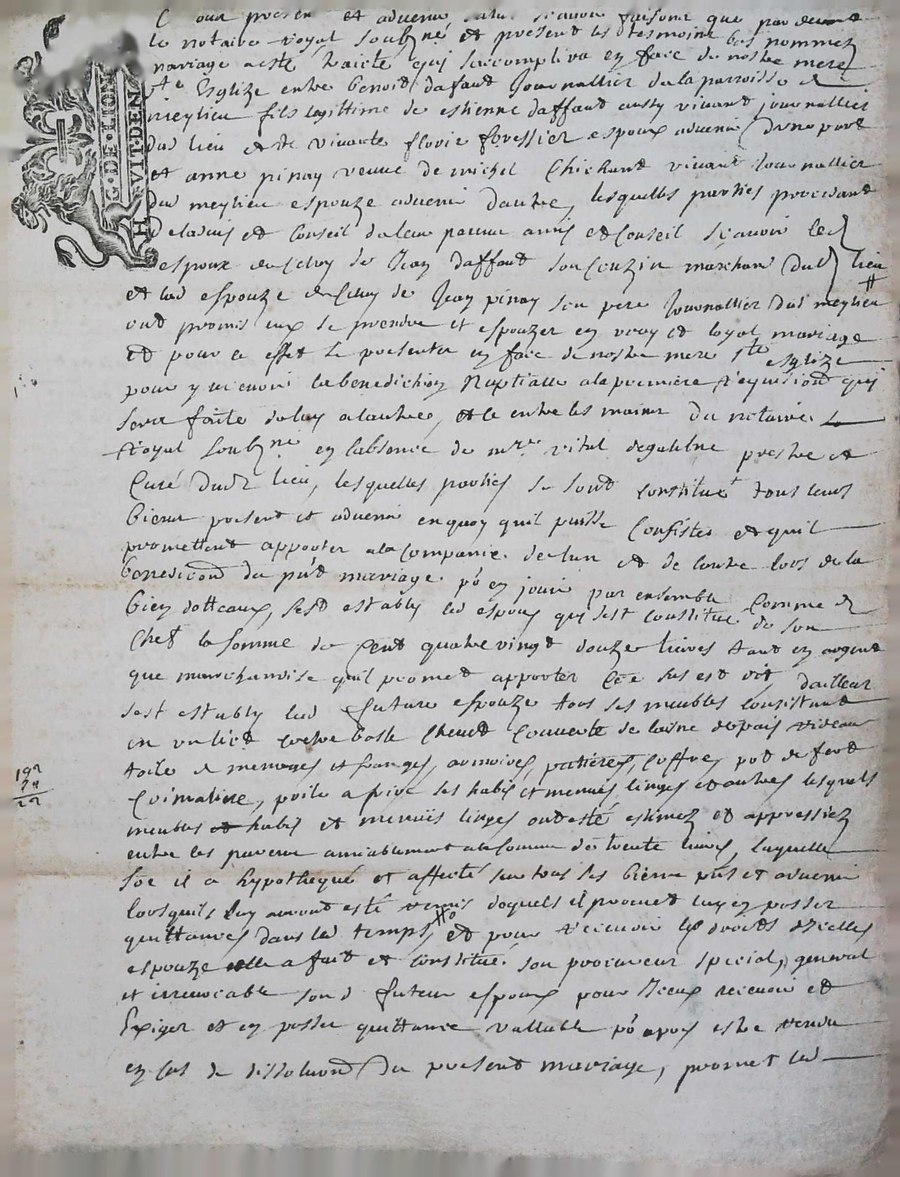 G·DE·LION
H VIT·DEN
A tous présent et advenir, salut scavoir faisons que par devant
le notaire royal soubz.né et présent les tesmoins bas nommez
mariage a esté traicté quy s'accomplira en face de nostre mere
s.te Esglize entre benoist daffaud Journallier de la parroisse de
meylieu fils legittime de estienne daffaud aussy vivant journallier
dud lieu et de vivante florie forestier espoux advenir d'une part
et anne pinay veuve de michel Chichand vivant journallier
dud meylieu espouze advenir d'autre, lesquelles parties procedant
de ladvis et conseil de leur parens amis et conseil scavoir led
espoux de celuy de Jean daffaud son couzin marchand dud lieu
et lad espouze de celluy de Jean pinay son pere Journallier dud meylieu
ont promis eux se prendre et espouzer en vray et loyal mariage
et pour ce effet se presenter en face de nostre mere s.te esglize
pour y recevoir la benediction Nuptialle a la premiere requision quy
sera faite de lun a lautre, et ce entre les mains du notaire
Royal soubz.né en labsence de m.re vital prestre et
Curé dud lieu, lesquelles parties se sont constitué tous leurs
biens present et advenir en quoy quil puisse consister et quil
promettent apporter a la Compagnie de lun et de lautre lors de la
benediction du pñt mariage po en jouir par ensemble Comme de
bien dottaux, sest estably led espoux quy sest constitué de son
Chef la somme de Cent quatre vingt douze livres tant en argent
que marchandise quil promet apporter Côe sus est dit dailleur
sest estably lad future espouze tous ses meubles consistant
en un lict boste Couverte de laine rideau
toile de menages et franges, armoires, patieres, Coffre, pot de fert
Cuimalliere, poile a frire ses habis et menues linges et autres lesquels
meubles et habis et menuës linges ont esté estimez et appressiez
entre les parens amiablement a la somme de trente livres, laquelle
soê il a hypothequé et affecté sur tous ses biens pñt et advenir
lorsquils luy auront esté remis desquels il promet luy en passer
quittances dans led temps, et pour recevoir les droits dicelles
espouze elle a fait et constitué son procureur special, general
et irrevocable sond futeur espoux pour Iceux recevoir et
Exiger et en passer quittance vallable po apres estre rendu
en cas de dissolution du present mariage, promet led
192
30
22